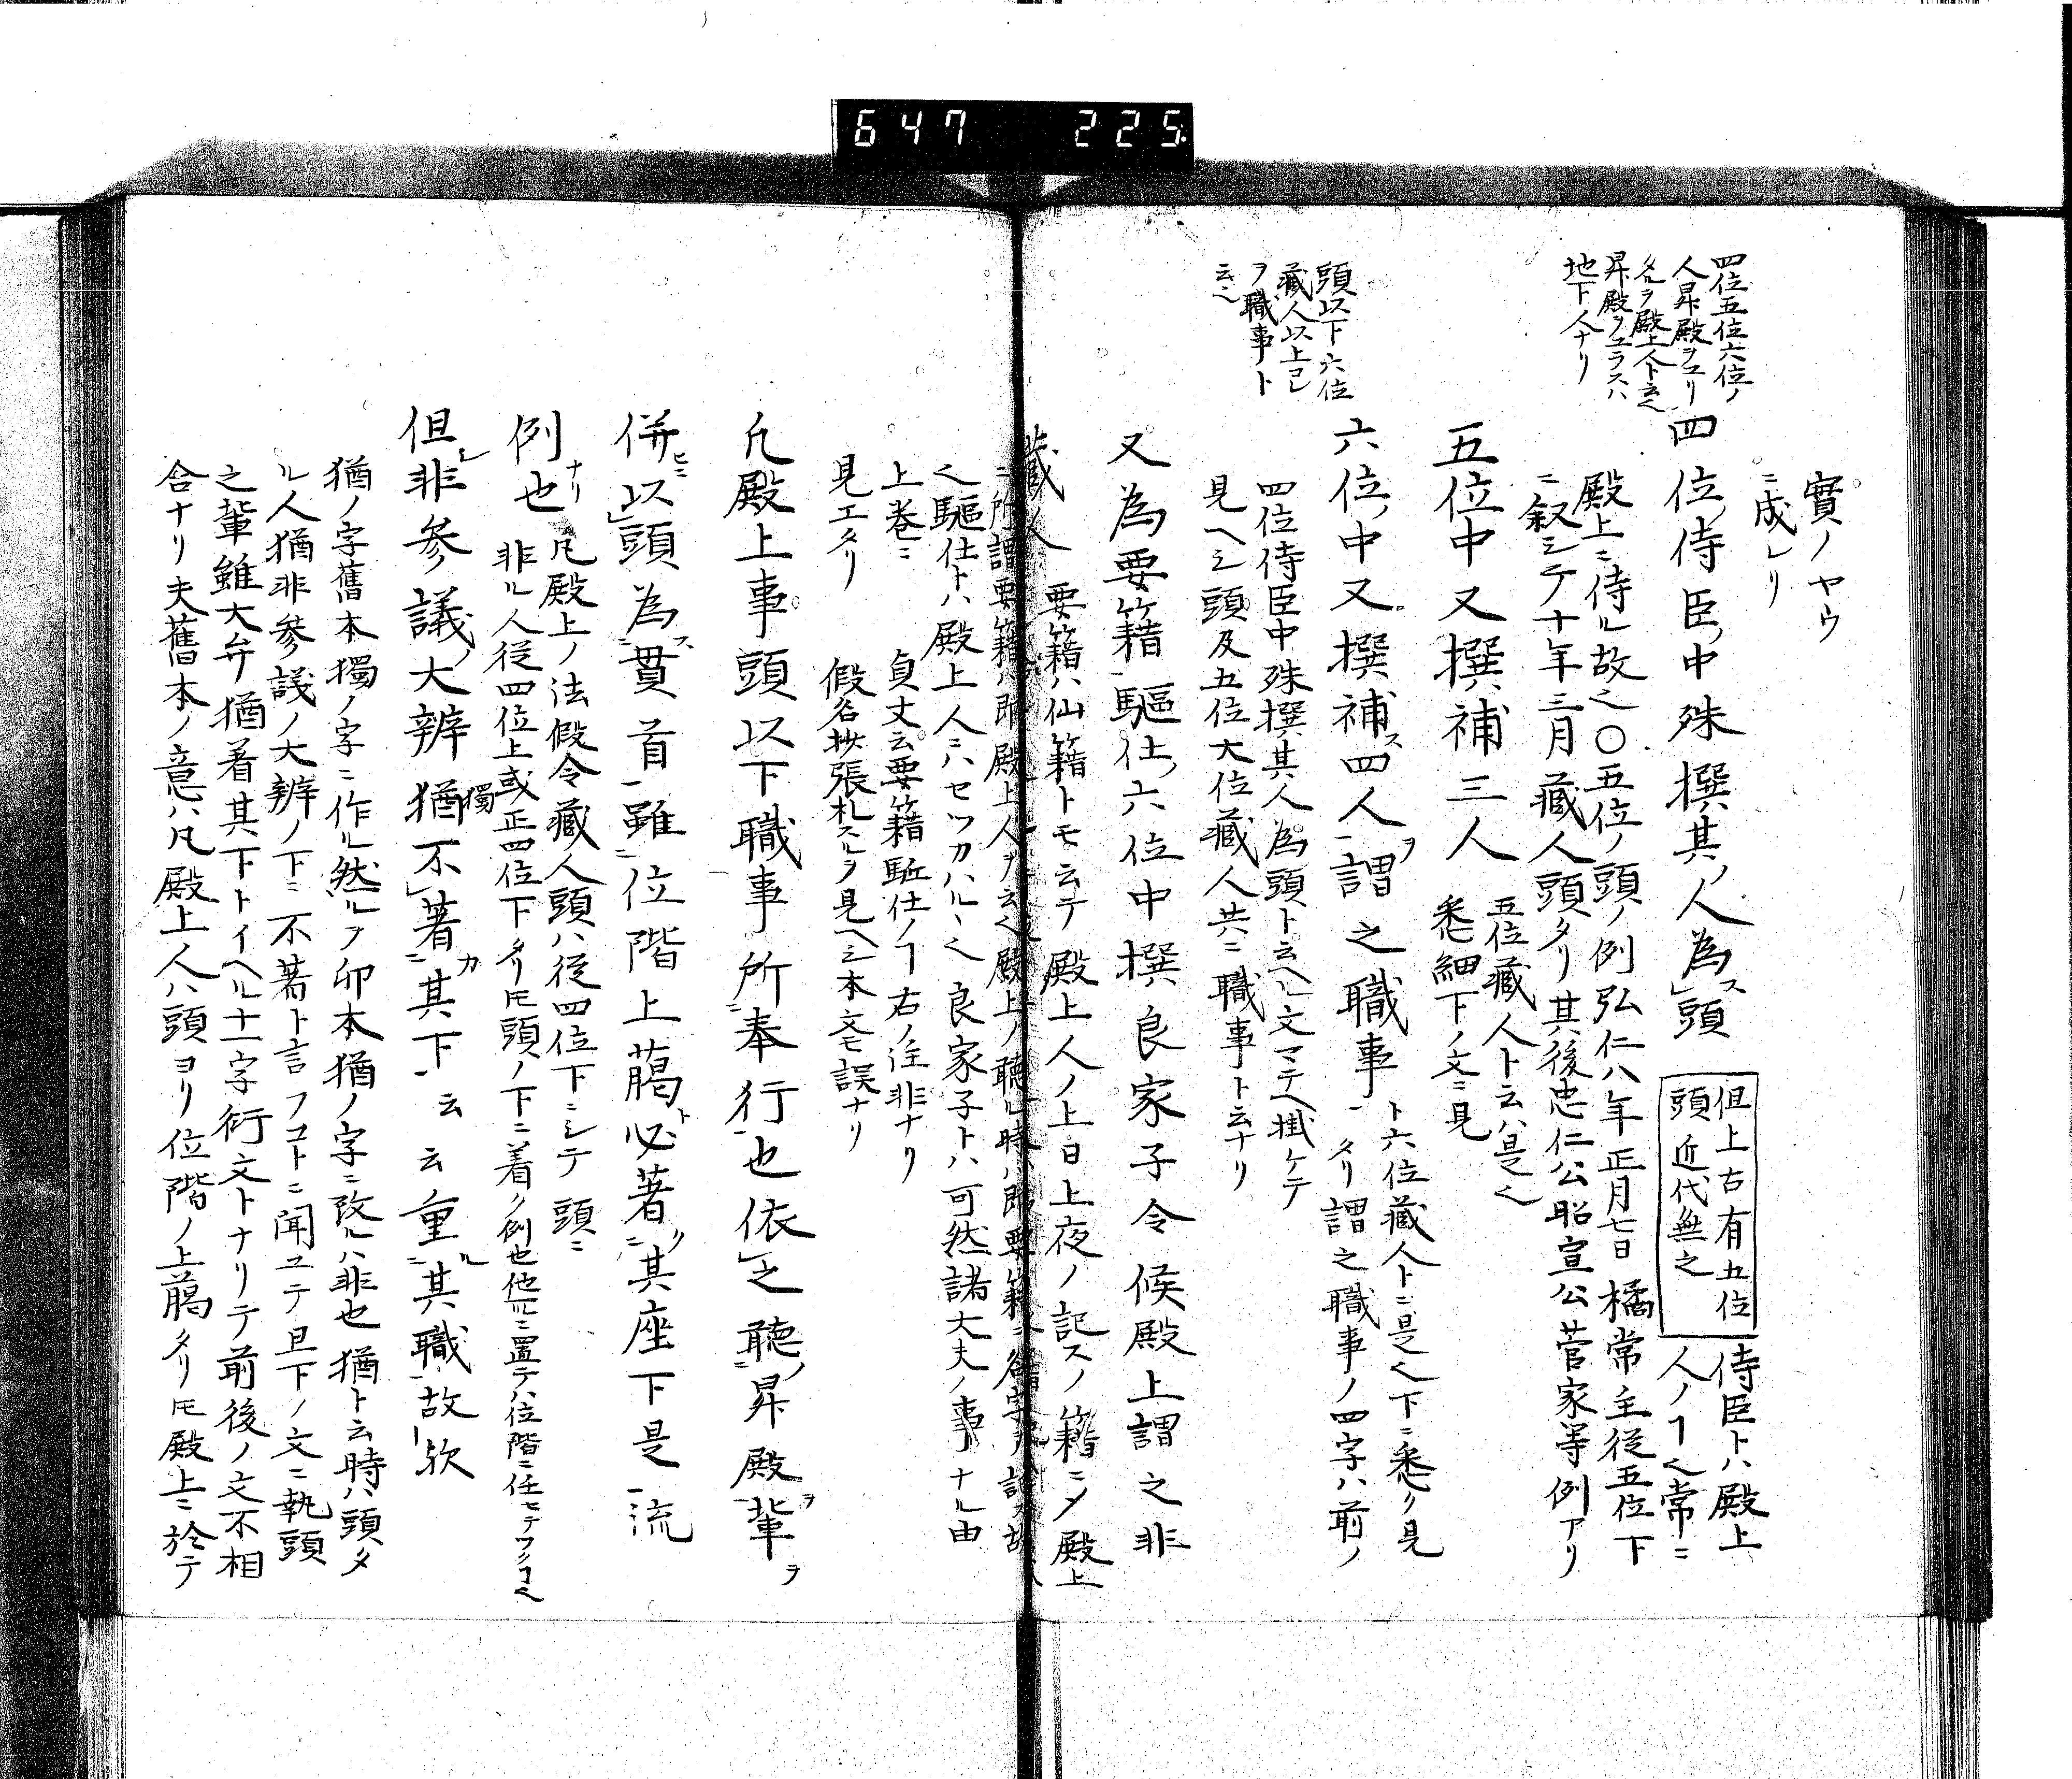 647 225
四位五位六位ノ
人昇殿ヲユリ
名ヲ殿上人ト云〱
昇殿ヲユラスハ
地下人ナリ
頭以下六位
藏人以上コレ
ヲ職事ト
云〱
實ノヤウ
ニ成レリ
四位侍臣中殊撰其人為頭
但上古有五位
頭近代無之
侍臣トハ殿上
人ノヿ〱常ニ
殿上ニ侍ル故〱〇五位ノ頭ノ例弘仁八年正月七日橘常主従五位下
ニ叙シテ十年三月藏人頭タリ其後忠仁公昭宣公菅家等例アリ
五位中又撰補三人
五位藏人ト云ハ是〱
悉細下ノ文ニ見
六位中又撰補四人謂之職事
六位藏人ト云是〱下ニ悉ク見
タリ謂之職事ノ四字ハ前ノ
四位侍臣中殊撰其人為頭ト云ヘル文マテヘ掛ケテ
見ヘシ頭及五位六位藏人共ニ職事ト云ナリ
又為要籍驅仕六位中撰良家子令候殿上謂之非
藏人
要籍ハ仙籍トモ云テ殿上人ノ上日上夜ノ記スノ籍ニメ殿上
ニ所謂要籍ハ即殿上人ヲ云〱殿上ノ聽ル時ハ即要籍ニ
〱驅仕トハ殿上人ニハセツカハルヽ〱良家子トハ可然諸大夫ノ事ナル由
上巻ニ
見エタリ
貞丈云要籍駈仕ノヿ右ノ注非ナリ
假名抄張札スルヲ見ヘシ本文モ誤ナリ
凡殿上事頭以下職事所奉行也依之聽昇殿輩
併以頭為貫首雖位階上﨟必著其座下是流
例也
凡殿上ノ法假令藏人頭ハ従四位下ニシテ頭ニ
非ル人従四位上或正四位下タリ𪜈頭ノ下ニ着ク例也他所ニ置テハ位階ニ任セテツクコ〱
但非参議大辨猶不著其下云云重其職故欤
獨
猶ノ字舊本獨ノ字ニ作ル然ルヲ卯本猶ノ字ニ改ルハ非也猶ト云時ハ頭タ
ル人猶非参議ノ大辨ノ下ニ不著ト言フコトニ聞ユテ且下ノ文ニ執頭
之輩雖大弁猶着其下トイヘル十一字衍文トナリテ前後ノ文不相
合ナリ夫舊本ノ意ハ凡殿上人ハ頭ヨリ位階ノ上﨟タリ𪜈殿上ニ於テ